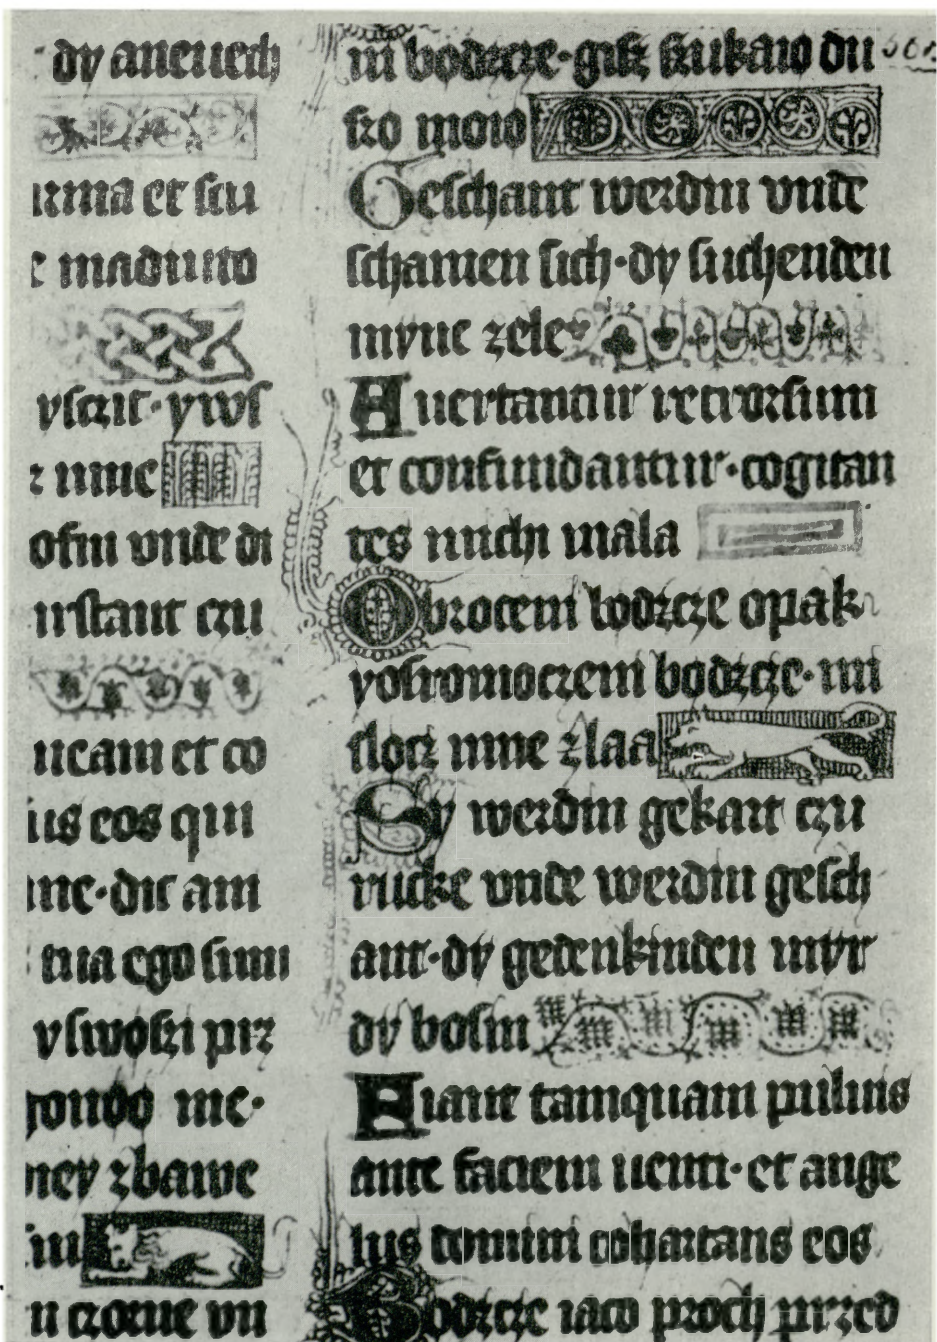 dy aneuech
rma et scu
e in adiuto
ysczit · yws
z mne
ofin vnde di
irstant czu
meam et co
us eos qui
me · dic ani
tua ego sum
ney zbawe
in bodzcze · gisz szukaiø du
szø moiø
Geschant werdin vnde
schamen sich · dy suchenden
myne zele
Auertantur retrorsum
et confundantur · cogitan
tes michi mala
Obroceni bodzcze opak
ysosromoczeni bodzcze · mi
sløcz mne zlaa
Sy werdin gekart czu
rucke vnde werdin gesch
ant · dy gedenkinden myr
dy bosin
Fiant tamquam puluis
ante faciem uenti · et ange
lus domini cohartans eos
Bodzcze iaco proch przed